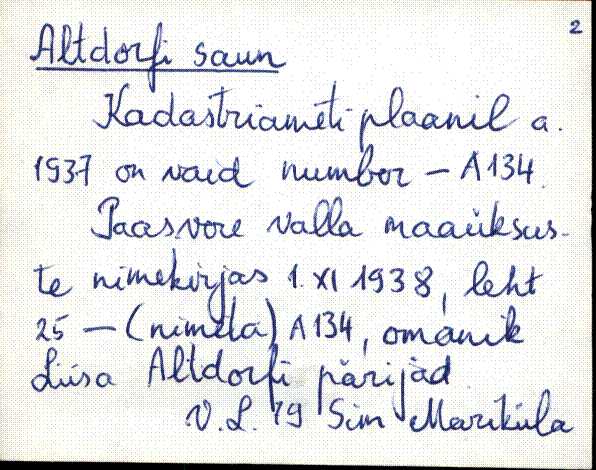 2
Altdorfi saun
Kadastriameti plaanil a.
1937 on vaid number – A134.
Paasvere valla maaüksus-
te nimekirjas 1. XI 1938, leht
25 – (nimeta) A134, omanik
Liisa Altdorfi pärijad
V. L. 79 Sim Mariküla